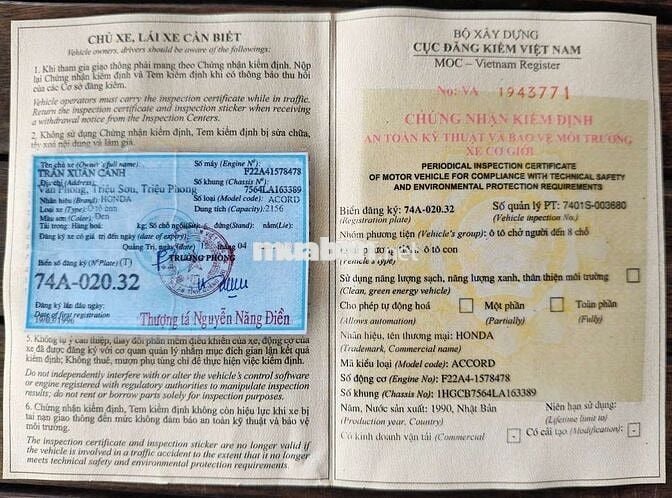 CHỦ XE, LÁI XE CẦN BIẾT
Vehicle owners, drivers should be aware of the followings:
1. Khi tham gia giao thông phải mang theo Chứng nhận kiểm định. Nộp
lại Chứng nhận kiểm định và Tem kiểm định khi có thông báo thu hồi
của các Cơ sở đăng kiểm.
Vehicle operators must carry the inspection certificate while in traffic.
Return the inspection certificate and inspection sticker when receiving
a withdrawal notice from the Inspection Centers.
2. Không sử dụng Chứng nhận kiểm định, Tem kiểm định bị sửa chữa,
tẩy xoá nội dung và làm giả.
Tên chủ xe (Owner's full name):
TRẦN XUÂN CẢNH
Địa chỉ (Address):
Vân Phong, Triệu Sơn, Triệu Phong
Nhãn hiệu (Brand): HONDA
Loại xe (Type): Ô tô con
Màu sơn (Color): Đen
Tải trọng: Hàng hoá: kg, Số chỗ ngồi (Sit): đứng (Stand): nằm (Lie):
Đăng ký xe có giá trị đến ngày (date of expiry):
Số máy (Engine Nº):
F22A41578478
Số khung (Chassis Nº):
7564LA163389
Số loại (Model code): ACCORD
Dung tích (Capacity): 2156
Quảng Trị, ngày (date) 12 tháng 04
P TRƯỞNG PHÒNG
Biển số đăng ký (N°Plate) (T)
74A-020.32
Đăng ký lần đầu ngày:
Date of first registration
19/03/1996
Thượng tá Nguyễn Năng Điền
muaban.net
5. Không tự ý can thiệp, thay đổi phần mềm điều khiển của xe, động cơ của
xe đã được đăng ký với cơ quan quản lý nhằm mục đích gian lận kết quả
kiểm định; Không thuê, mượn phụ tùng chỉ để thực hiện việc kiểm định.
Do not independently interfere with or alter the vehicle's control software
or engine registered with regulatory authorities to manipulate inspection
results; do not rent or borrow parts solely for inspection purposes.
6. Chứng nhận kiểm định, Tem kiểm định không còn hiệu lực khi xe bị
tai nạn giao thông đến mức không đảm bảo an toàn kỹ thuật và bảo vệ
môi trường.
The inspection certificate and inspection sticker are no longer valid if
the vehicle is involved in a traffic accident to the extent that it no longer
meets technical safety and environmental protection requirements.
BỘ XÂY DỰNG
CỤC ĐĂNG KIỂM VIỆT NAM
MOC – Vietnam Register
No: VA 1943771
CHỨNG NHẬN KIỂM ĐỊNH
AN TOÀN KỸ THUẬT VÀ BẢO VỆ MÔI TRƯỜNG
XE CƠ GIỚI
PERIODICAL INSPECTION CERTIFICATE
OF MOTOR VEHICLE FOR COMPLIANCE WITH TECHNICAL SAFETY
AND ENVIRONMENTAL PROTECTION REQUIREMENTS
Biển đăng ký: 74A-020.32 Số quản lý PT: 7401S-003680
(Registration plate) (Vehicle inspection No.)
Nhóm phương tiện (Vehicle's group): ô tô chở người đến 8 chỗ
ô tô con
(Vehicle's type)
Sử dụng năng lượng sạch, năng lượng xanh, thân thiện môi trường
(Clean, green energy vehicle)
Cho phép tự động hoá Một phần Toàn phần
(Allows automation) (Partially) (Fully)
Nhãn hiệu, tên thương mại: HONDA
(Trademark, Commercial name)
Mã kiểu loại (Model code): ACCORD
Số động cơ (Engine No): F22A4-1578478
Số khung (Chassis No): 1HGCB7564LA163389
Năm, Nước sản xuất: 1990, Nhật Bản Niên hạn sử dụng:
(Production year, Country) (Lifetime limit to)
Có kinh doanh vận tải (Commercial - Có cải tạo (Modification): -